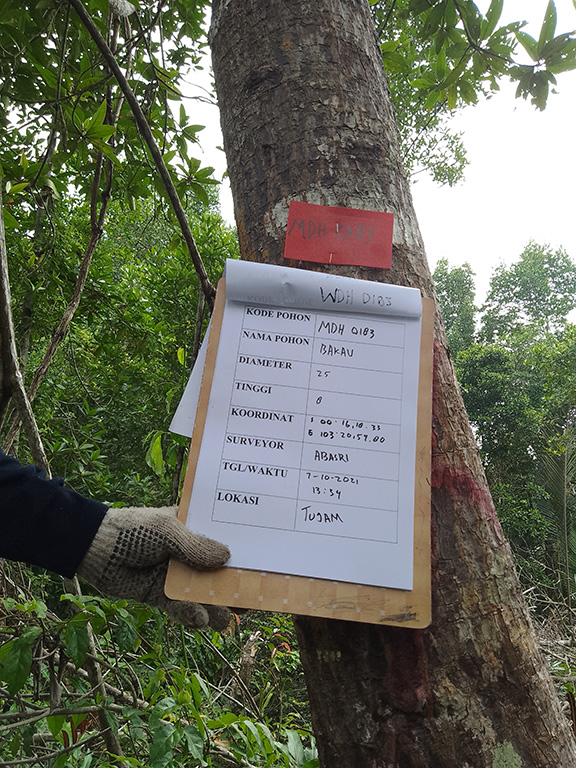 MDH 0183
WDH 0183
KODE POHON MDH 0183
NAMA POHON BAKAU
DIAMETER 25
TINGGI 8
KOORDINAT S 00.16,18.33
E 103.20,59.00
SURVEYOR ABASRI
TGL/WAKTU 7-10-2021
13:34
LOKASI TUJAM